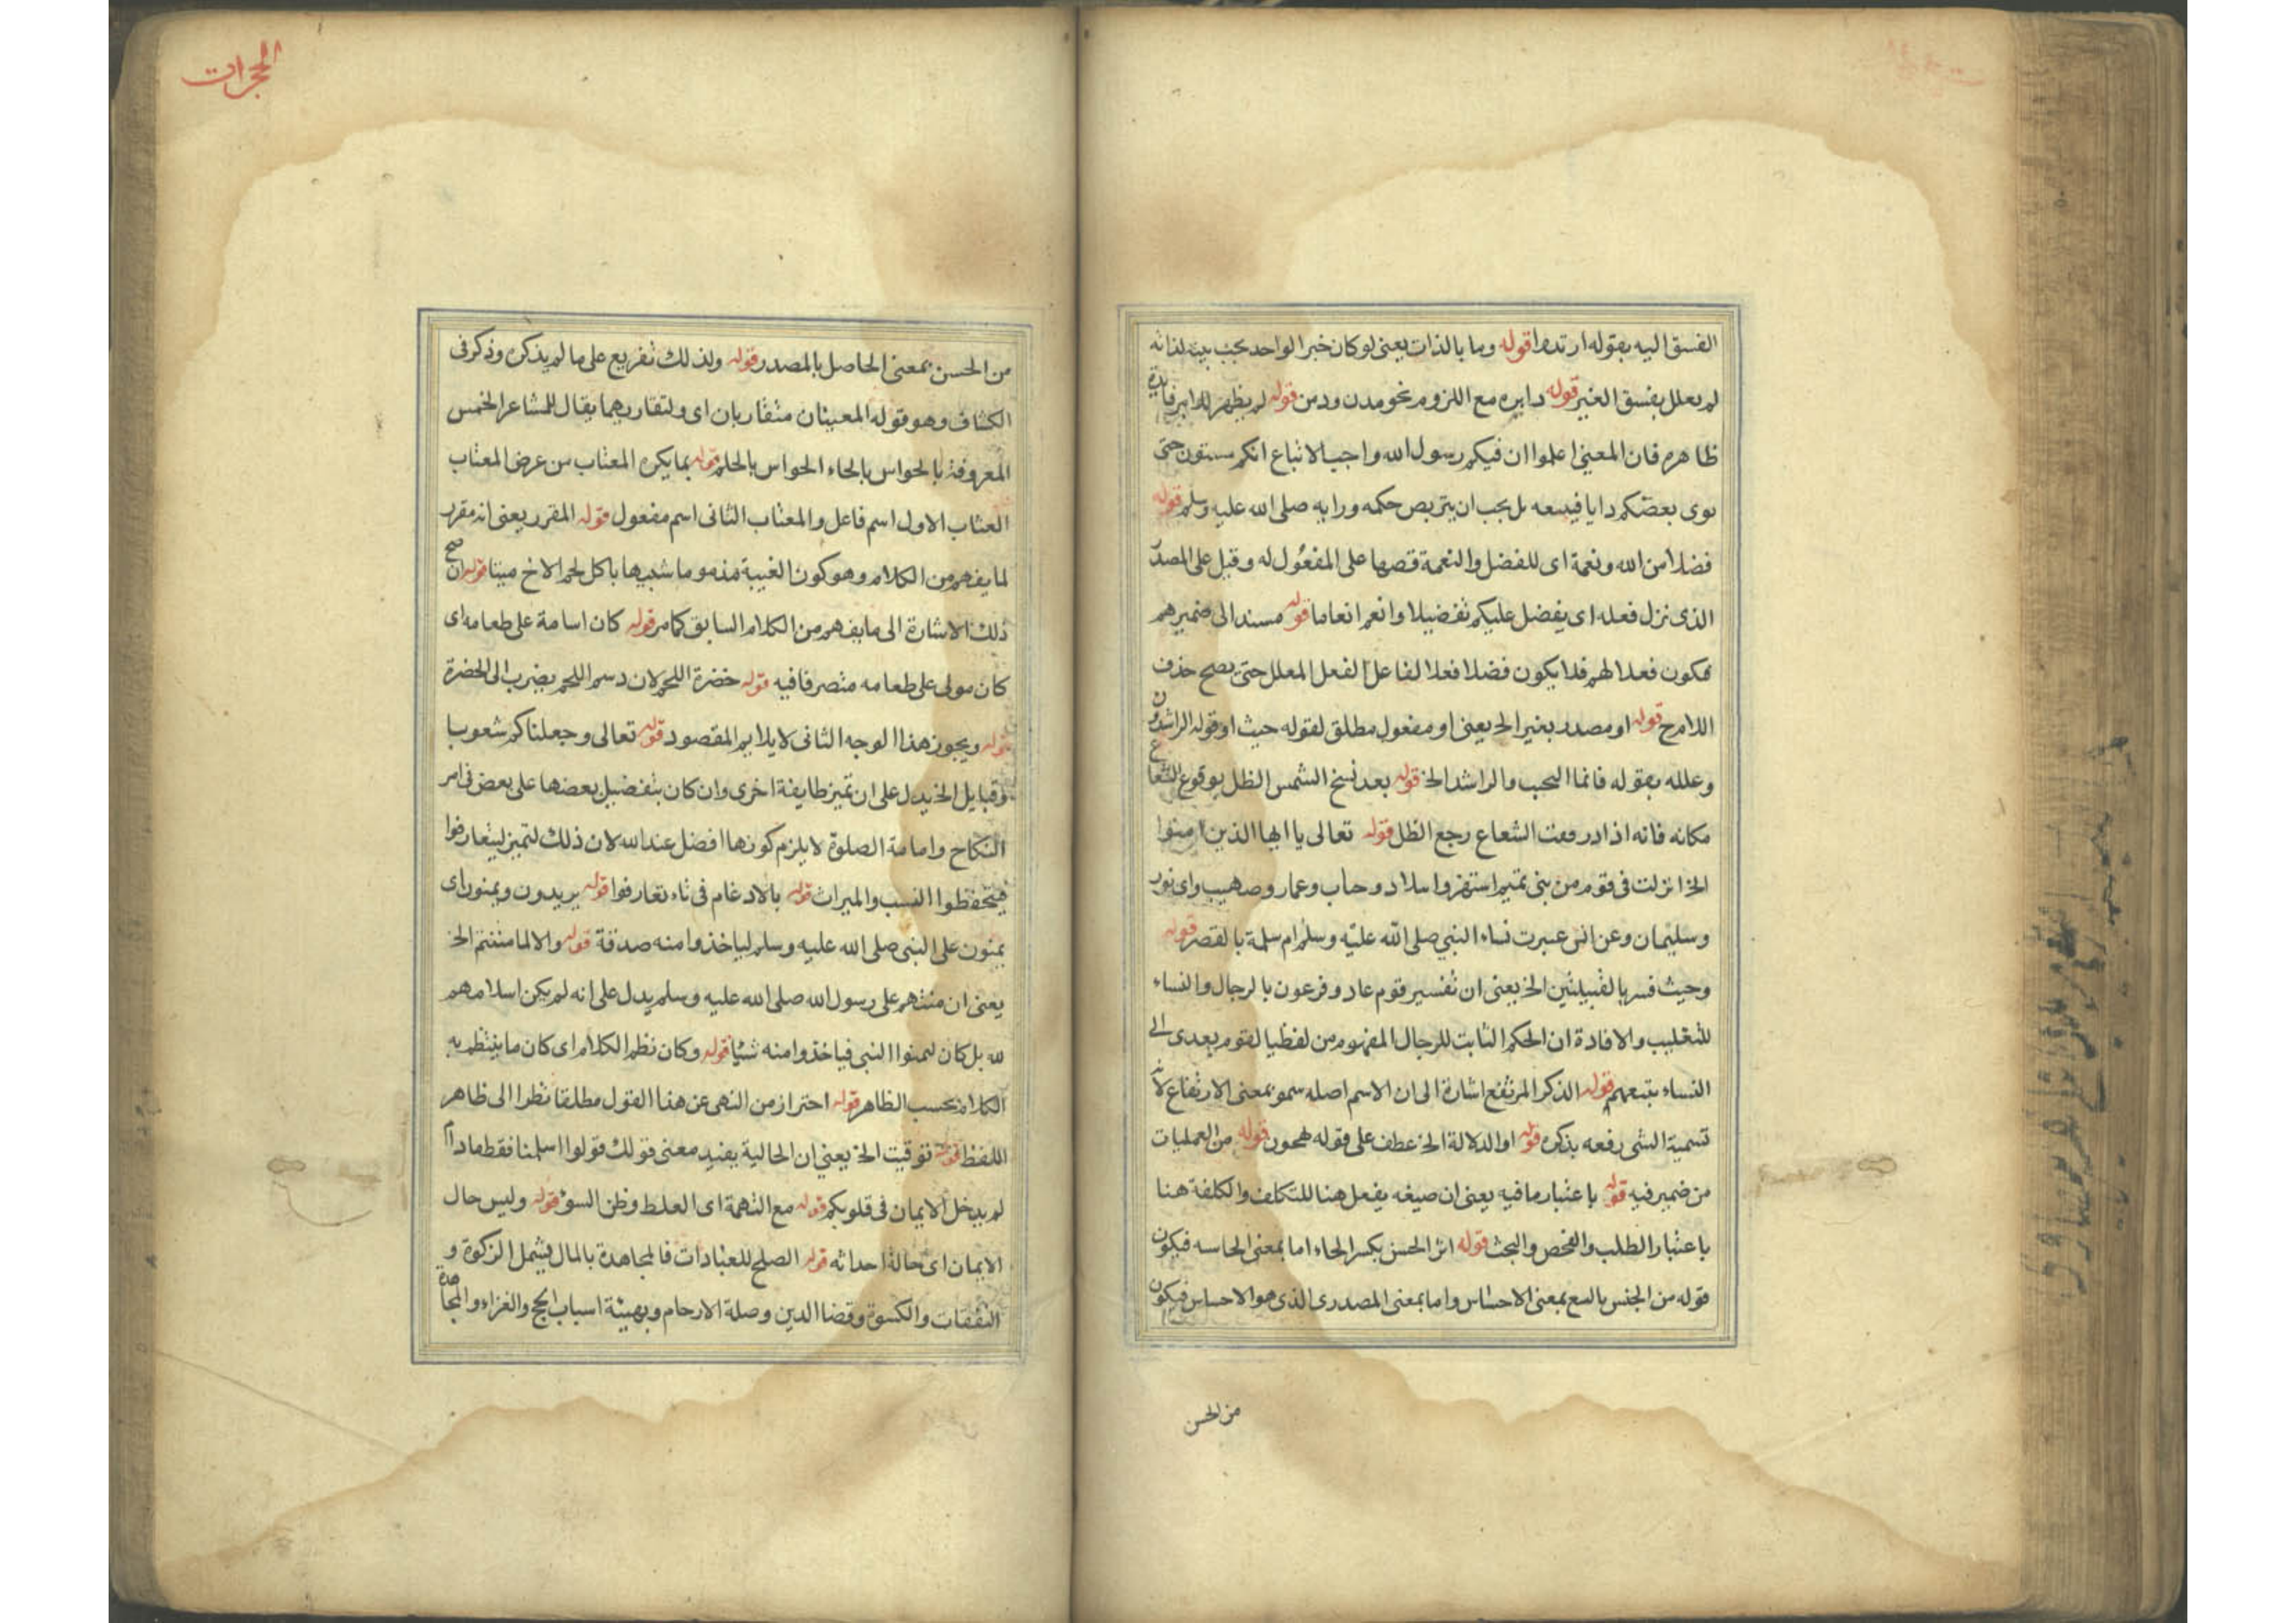 الفسق اليه بقوله ارتدوا قوله وما بالذات يعنى لو كان خبر الواحد يجب بيته لذاته
لم يعلل بفسق الغير قوله دايره مع اللزوم نحو مدن ودمن قوله لم يظهر للامر فايدة
ظاهره فان المعنى اعلموا ان فيكم رسول الله واجب الاتباع انكم ستون حتى
نوى بعضكم دايا فيسعه بل يجب ان يتربص حكمه ورايه صلى الله عليه وسلم قوله
فضلا من الله ونعمة اى للفضل والنعمة قصها على المفعول له وقيل على المصدر
الذى نزل فعله اى يفضل عليكم تفضيلا وانعم انعاما قوله مسند الى ضميرهم
فكون فعلا لهم فلا يكون فضلا فعلا لفاعل الفعل المعلل حتى يصح حذف
اللامح قوله او مصدر بغير الخ يعنى او مفعول مطلق لقوله حيث او قوله الراشدون
وعلله بقوله فانما الحب والراشد الخ قوله بعد نسخ الشمس الظل يوقوع الشعاع
مكانه فانه اذا درفعت الشعاع رجع الظل قوله تعالى يا ايها الذين امنوا
الخ انزلت فى قوم من بنى تميم استهزوا بلاد وحاب وعمار وصهيب واى نور
وسليمان وعن انس عيرت نساء النبي صلى الله عليه وسلم ام سلمة بالقصر قوله
وحيث فسر بالقبيلتين الخ يعنى ان تفسير قوم عاد وفرعون بالرجال والنساء
للتغليب والافادة ان الحكم الثابت للرجال المفهوم من لفظ القوم يعدى الى
النساء بتبعهم قوله الذكر المرتفع اشارة الى ان الاسم اصله سمو بمعنى الارتفاع لان
تسمية الشى رفعه بذكره قوله او الدلالة الخ عطف على قوله لهجون قوله من العمليات
من ضمير فيه قوله باعتبار ما فيه يعنى ان صيغه يفعل هنا للتكلف والكلفة هنا
باعتبار الطلب والفحص والبحث قوله اثر الحسن بكسر الحاء اما بمعنى الحاسه فيكون
قوله من الجنس بالسع بمعنى الاحساس واما بمعنى المصدرى الذى هو الاحساس فيكون
من الحسن
الحجرات
من الحسن بمعنى الحاصل بالمصدر قوله ولذلك تفريع على ما لم يذكره وذكر فى
الكشاف وهو قوله المعنيان متقاربان اى ولتقاربهما يقال للمشاعر الخمس
المعروفة بالحواس بالحاء الحواس بالحلم قوله بما يكره المغتاب من عرض المغتاب
العتاب الاول اسم فاعل والمغتاب الثانى اسم مفعول قوله المقرر يعنى انه مقرر
لما يفهم من الكلام وهو كون الغيبة منه وما شبيها باكل لحم الاخ ميتا قوله ان صح
ذلك الاشارة الى ما يفهم من الكلام السابق كما مر قوله كان اسامة على طعامه اى
كان مولى على طعامه متصرفا فيه قوله خضرة اللحم لان دسم اللحم يضرب الى الخضرة
قوله ويجوز هذا الوجه الثانى لا يلايم المقصود قوله تعالى وجعلناكم شعوبا
وقبايل الخ يدل على ان تميز طايفة اخرى وان كان بتفضيل بعضها على بعض فى امر
النكاح وامامة الصلوة لا يلزم كونها افضل عند الله لان ذلك لتميز ليتعارفوا
فيتحفظوا النسب والميراث قوله بالادغام فى تاء تعارفوا قوله يريدون ويمنون اى
يمنون على النبى صلى الله عليه وسلم لياخذوا منه صدقة قوله والا لما مننتم الخ
يعنى ان منتهم على رسول الله صلى الله عليه وسلم يدل على انه لم يكن اسلامهم
لله بل كان ليمنوا النبى فياخذوا منه شيًا قوله وكان نظم الكلام اى كان ما ينتظم به
الكلام بحسب الظاهر قوله احتراز من النهى عن هذا القول مطلقا نظرا الى ظاهر
اللفظ قوله توقيت الخ يعنى ان الحالية يفيد معنى قولك قولوا اسلمنا فقط مادام
لم يدخل الايمان فى قلوبكم قوله مع التهمة اى الغلط وظن السوء قوله وليس حال
الايمان اى حالة احداثه قوله الصلح للعبادات فالمجاهدة بالمال يشمل الزكوة و
النفقات والكسوة وقضا الدين وصلة الارحام وبهيئة اسباب الحج والغزاء والمجاهدة